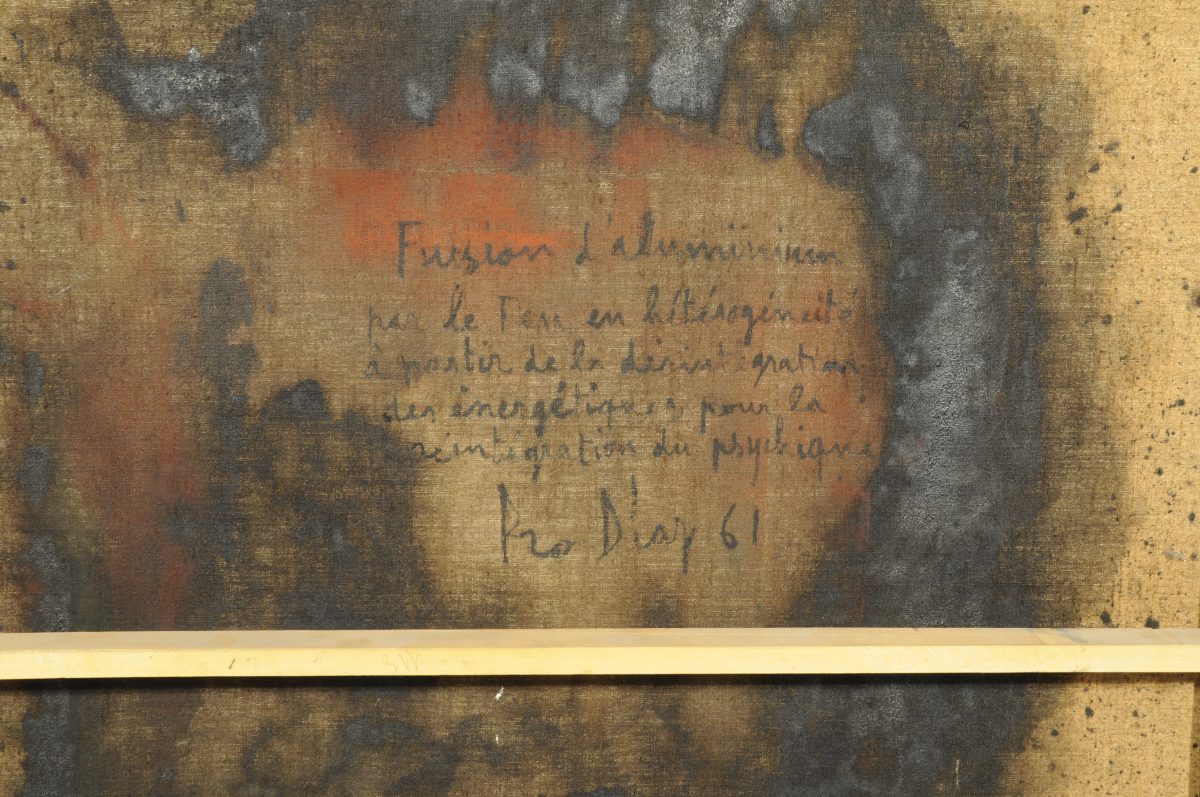 Fusion d'aluminium
par le Feu en hétérogénéité
à partir de la désintégration
des énergétiques pour la
réintégration du psychique
Pro Diaz 61